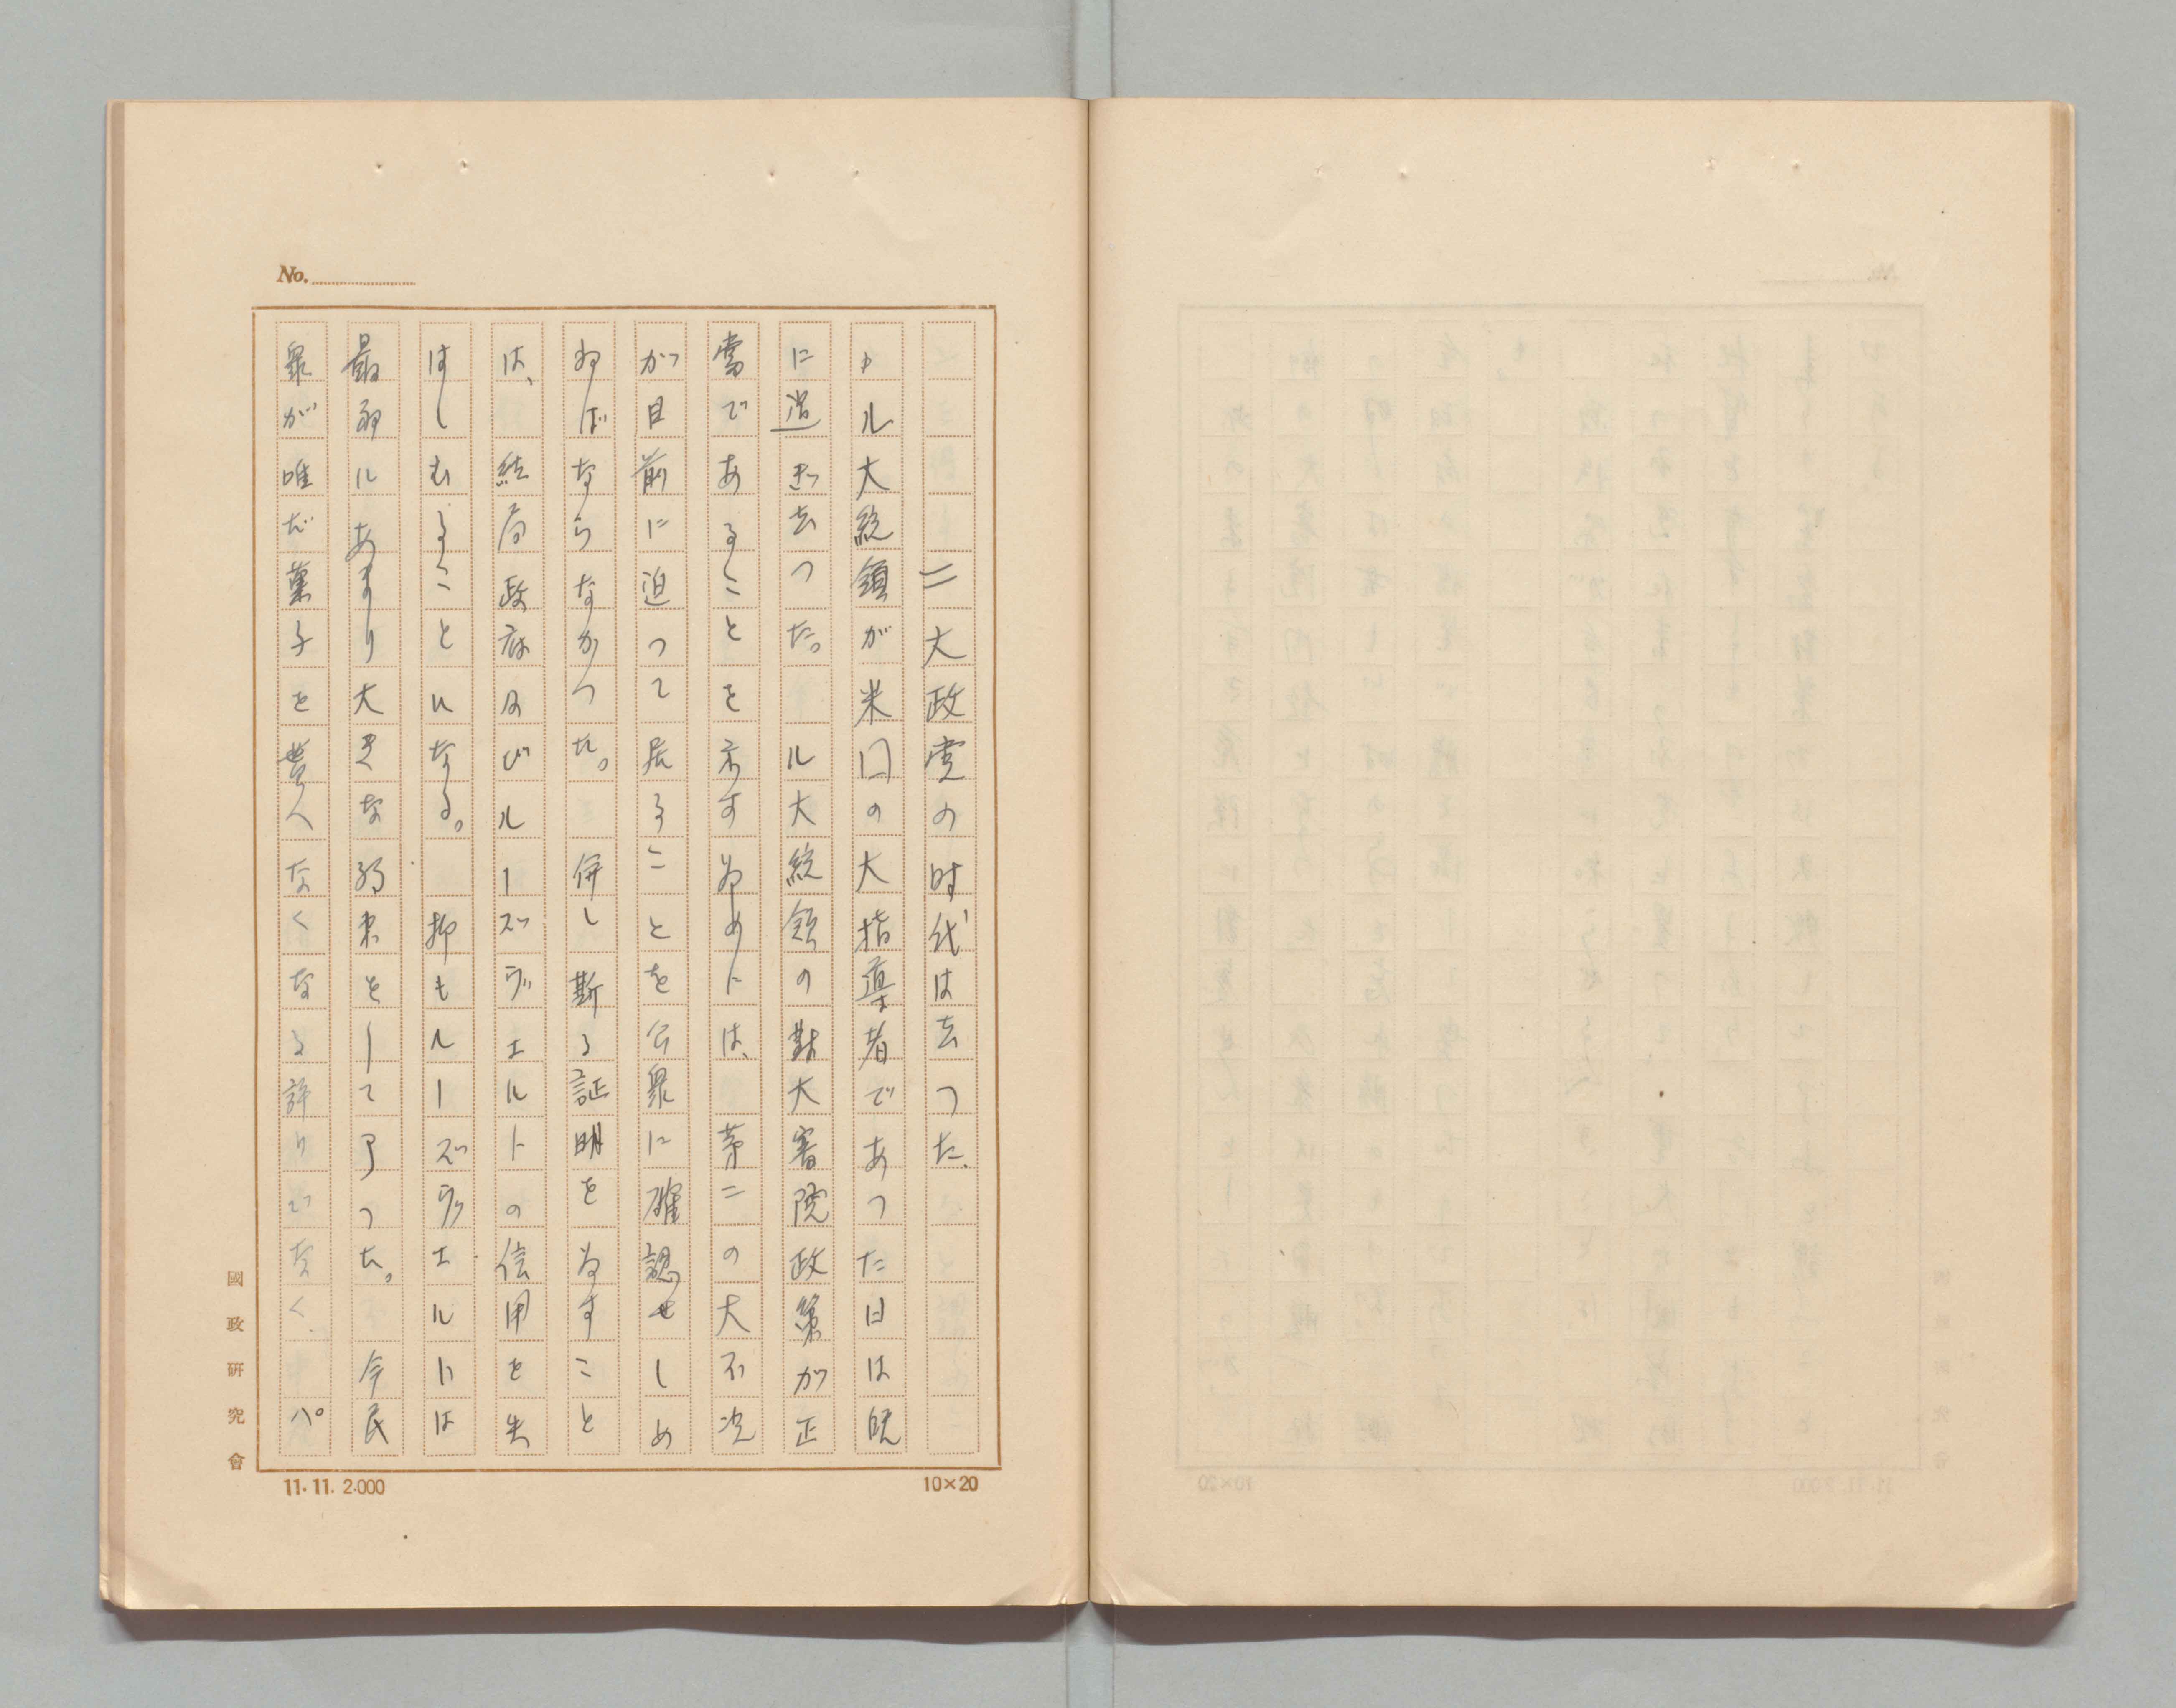 No.
二大政党の时代は去つた、
ル大統領が米囗の大指導者であつた日は既
に過ぎ去つた。ル大統領の對大審院政策が正
當であることを示すためには、第二の大不況
が目前に迫つて居ることを公衆に確認せしめ
ねばならなかつた。併し斯る証明を為すこと
は、結局政府及びルーズヴェルトの信用を失
はしむることになる。抑もルーズヴェルトは
最初にあまり大きな約束をして了つた。今民
衆が唯だ菓子を貰へなくなる許りでなく、パ
國政研究會
11.11.2.000
10×20